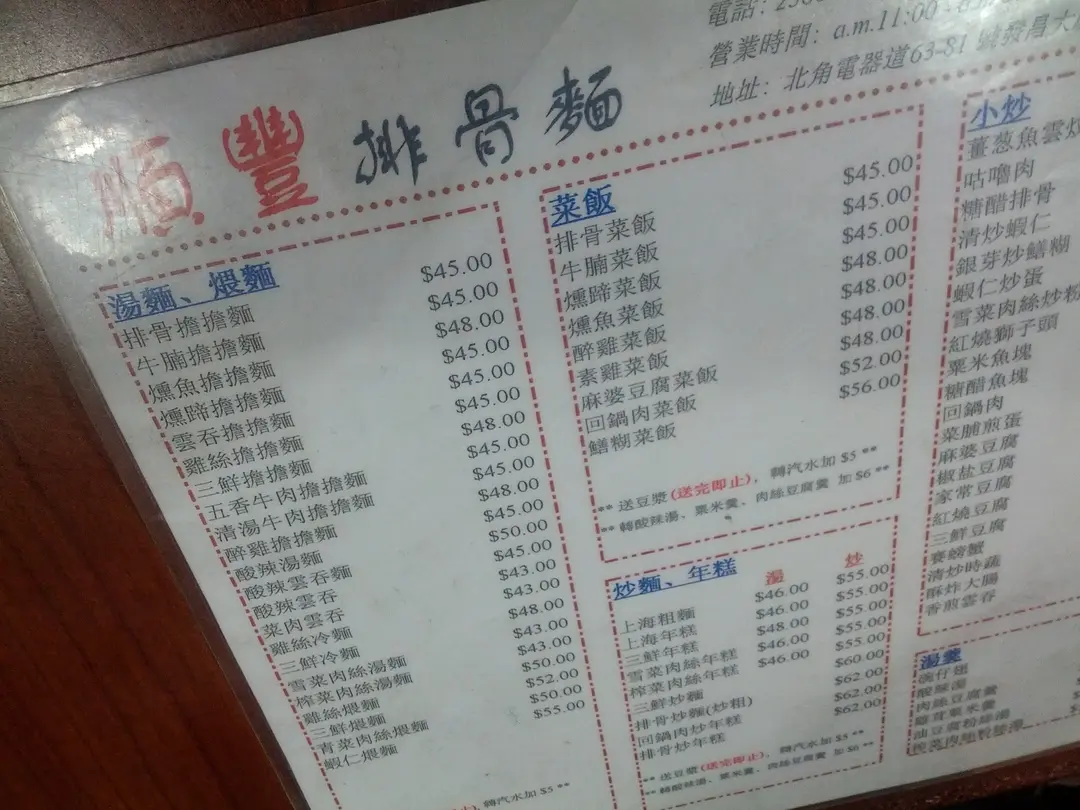 順豐 排骨麵
電話: 2566
營業時間: a.m.11:00 -
地址: 北角電器道63-81 號發昌大
湯麵、煨麵
排骨擔擔麵 $45.00
牛腩擔擔麵 $45.00
燻魚擔擔麵 $48.00
燻蹄擔擔麵 $45.00
雲吞擔擔麵 $45.00
雞絲擔擔麵 $45.00
三鮮擔擔麵 $48.00
五香牛肉擔擔麵 $45.00
清湯牛肉擔擔麵 $45.00
醉雞擔擔麵 $48.00
酸辣湯麵 $45.00
酸辣雲吞麵 $50.00
酸辣雲吞 $45.00
菜肉雲吞 $43.00
雞絲冷麵 $43.00
三鮮冷麵 $48.00
雪菜肉絲湯麵 $43.00
榨菜肉絲湯麵 $43.00
雞絲煨麵 $50.00
三鮮煨麵 $52.00
青菜肉絲煨麵 $50.00
蝦仁煨麵 $55.00
轉汽水加 $5 **
菜飯
排骨菜飯 $45.00
牛腩菜飯 $45.00
燻蹄菜飯 $45.00
燻魚菜飯 $48.00
醉雞菜飯 $48.00
素雞菜飯 $48.00
麻婆豆腐菜飯 $48.00
回鍋肉菜飯 $52.00
鱔糊菜飯 $56.00
** 送豆漿(送完即止), 轉汽水加 $5 **
** 轉酸辣湯、粟米羹、肉絲豆腐羹 加 $6 **
炒麵、年糕 湯 炒
上海粗麵 $46.00 $55.00
上海年糕 $46.00 $55.00
三鮮年糕 $48.00 $55.00
雪菜肉絲年糕 $46.00 $55.00
榨菜肉絲年糕 $46.00 $55.00
三鮮炒麵 $60.00
排骨炒麵(炒粗) $62.00
回鍋肉炒年糕 $62.00
排骨炒年糕 $62.00
** 送豆漿(送完即止), 轉汽水加 $5 **
** 轉酸辣湯、粟米羹、肉絲豆腐羹 加 $6 **
小炒
薑葱魚雲
咕嚕肉
糖醋排骨
清炒蝦仁
銀芽炒鱔糊
蝦仁炒蛋
雪菜肉絲炒粉
紅燒獅子頭
粟米魚塊
糖醋魚塊
回鍋肉
菜脯煎蛋
麻婆豆腐
椒盐豆腐
家常豆腐
紅燒豆腐
三鮮豆腐
賽螃蟹
清炒時蔬
酥炸大腸
香煎雲吞
湯羹
碗仔翅
酸辣湯
肉絲豆腐羹
粟米羹
油豆腐粉絲湯